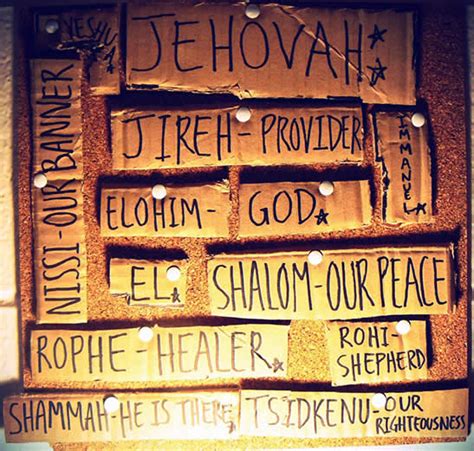 YESHUA
JEHOVAH
JIREH-PROVIDER
IMMANUEL
NISSI-OUR BANNER
ELOHIM-
GOD
EL
SHALOM-OUR PEACE
ROPHE-HEALER
ROHI-
SHEPHERD
SHAMMAH-HE IS THERE
TSIDKENU-OUR
RIGHTEOUSNESS